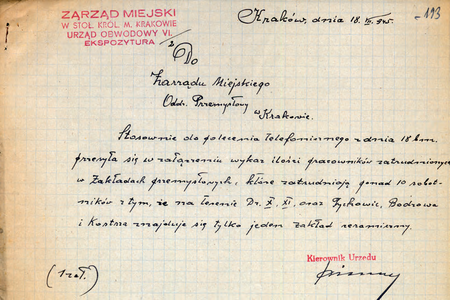 Kraków, dnia 18. VI. 945.
193
ZARZĄD MIEJSKI
W STOŁ. KRÓL. M. KRAKOWIE
URZĄD OBWODOWY VI.
EKSPOZYTURA
Do
Zarządu Miejskiego
Oddz. Przemysłowy
w Krakowie.
Stosownie do polecenia telefonicznego z dnia 18 bm.
przesyła się w załączeniu wykaz ilości pracowników zatrudnionych
w Zakładach przemysłowych, które zatrudniają ponad 10 robot-
ników z tym, że na terenie Dz. X, XI, oraz Pychowic, Bodzowa
i Kostrza znajduje się tylko jeden zakład ceramiczny.
Kierownik Urzędu
(1 zał.)